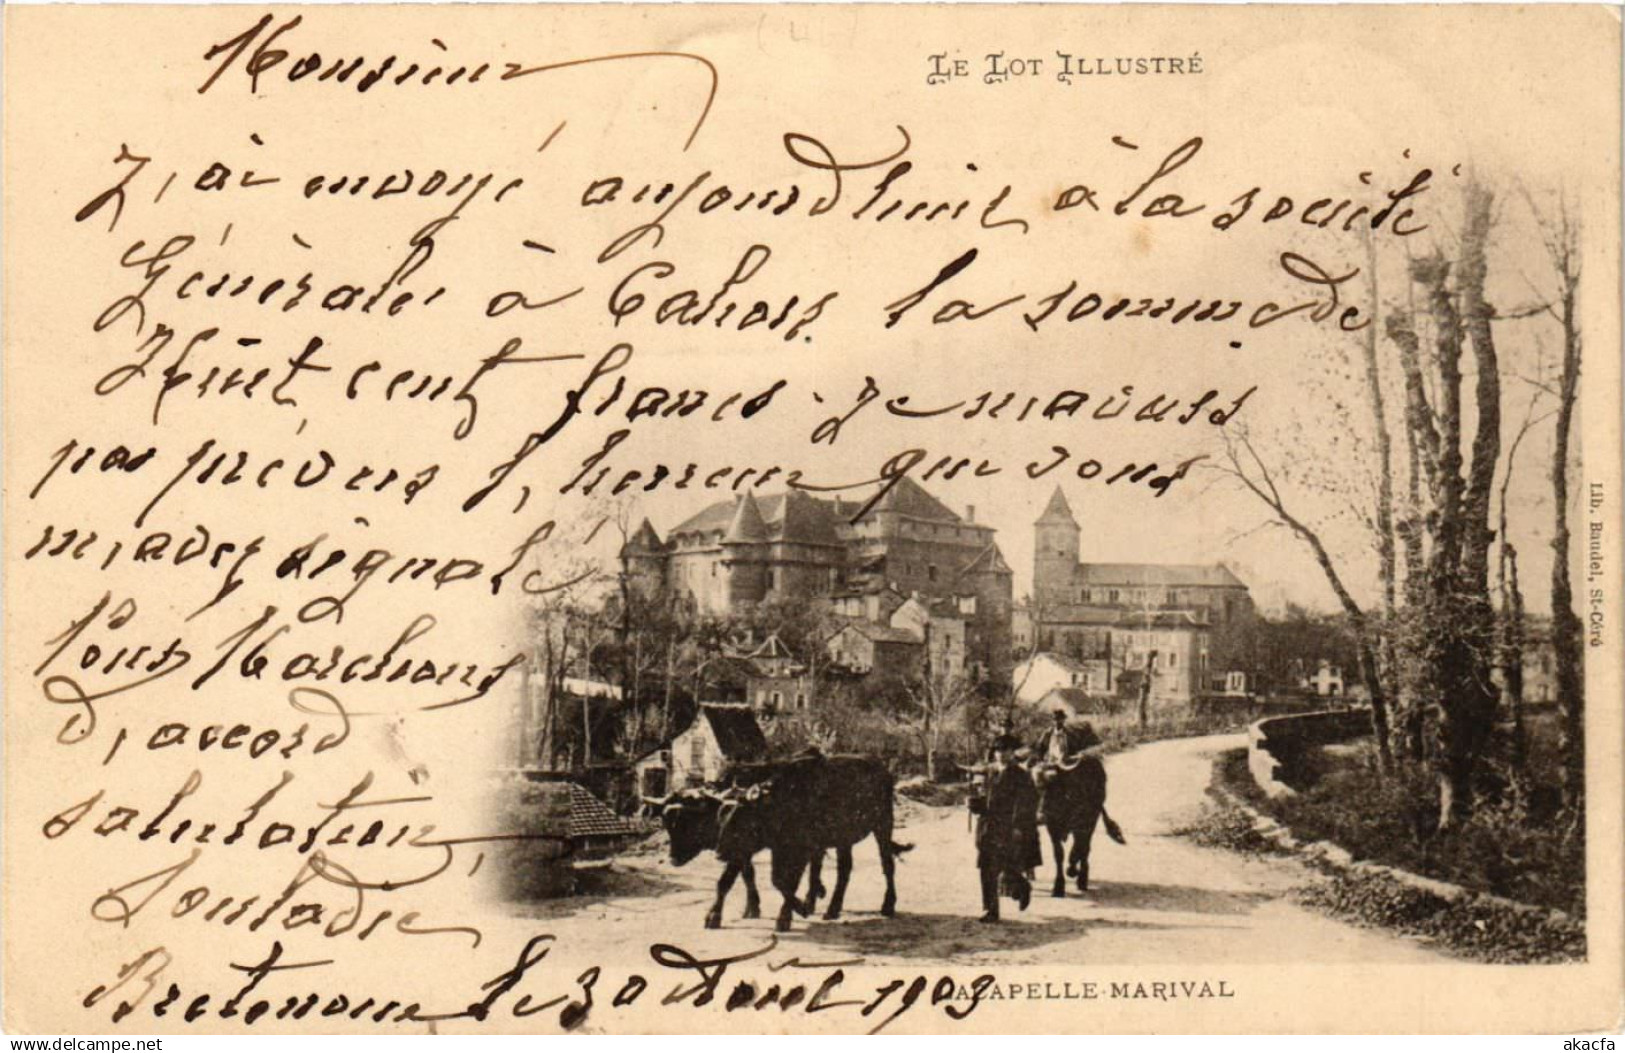 LE LOT ILLUSTRÉ
Monsieur
J,ai envoyé aujourdhuit à la société
Générale à Cahors la somme de
Huit cent francs. Je m,avais
pas prévus l, herreur que vous
m,avez signalé
Nous Marchons
d, accord
salutation,
Souladie
Bretenoux le 30 Août 1903
LACAPELLE-MARIVAL
Lib. Baudel, St-Céré
akg-images.delcampe.net
akacfa